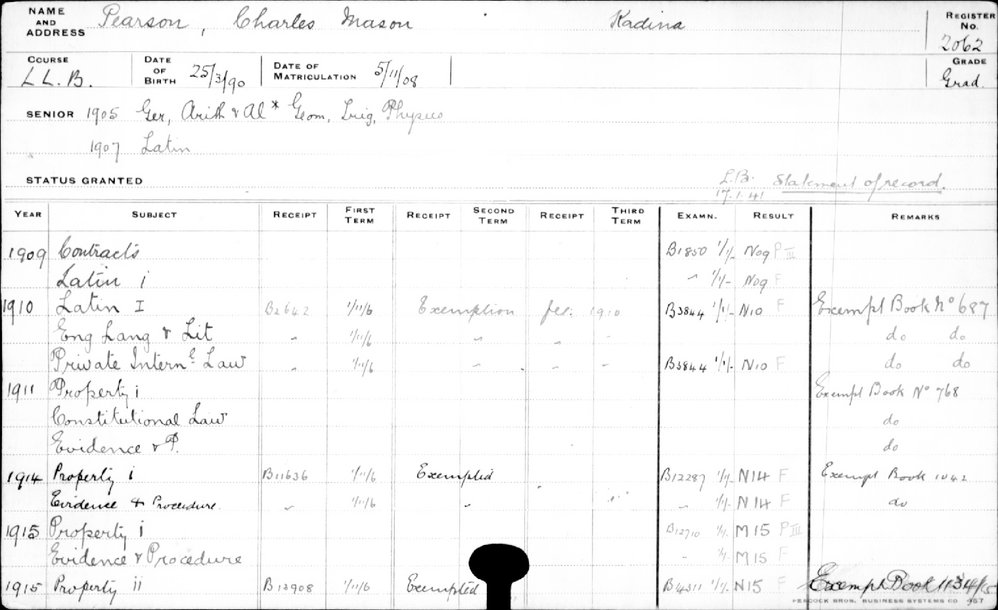 NAME AND ADDRESS Pearson, Charles Mason Kadina REGISTER No. 2062
COURSE LL.B. DATE OF BIRTH 25/3/90 DATE OF MATRICULATION 5/11/08 GRADE Grad.
SENIOR 1905 Ger, Arith & Al* Geom, Trig, Physics
1907 Latin
STATUS GRANTED L.B. 17.1.41 Statement of record.
YEAR SUBJECT RECEIPT FIRST TERM RECEIPT SECOND TERM RECEIPT THIRD TERM EXAMN. RESULT REMARKS
1909 Contracts B1850 1/1/- N09 P III
Latin i " 1/1/- N09 F
1910 Latin I B2642 1/11/6 Exemption fee: 1910 B3844 1/1/- N10 F Exempt Book No 687
Eng Lang & Lit " 1/11/6 " " do do
Private Intern. Law " 1/11/6 " " B3844 1/1/- N10 F do do
1911 Property i Exempt Book No 768
Constitutional Law do
Evidence & P. do
1914 Property i B11636 1/11/6 Exempted B12287 1/1/- N14 F Exempt Book 1042
Evidence & Procedure " 1/11/6 " " 1/1/- N14 F do
1915 Property i B12710 1/1/- M15 P III
Evidence & Procedure " 1/1/- M15 F
1915 Property ii B12908 1/11/6 Exempted B4311 1/1/- N15 F Exempt Book
PEACOCK BROS. BUSINESS SYSTEMS CO 957